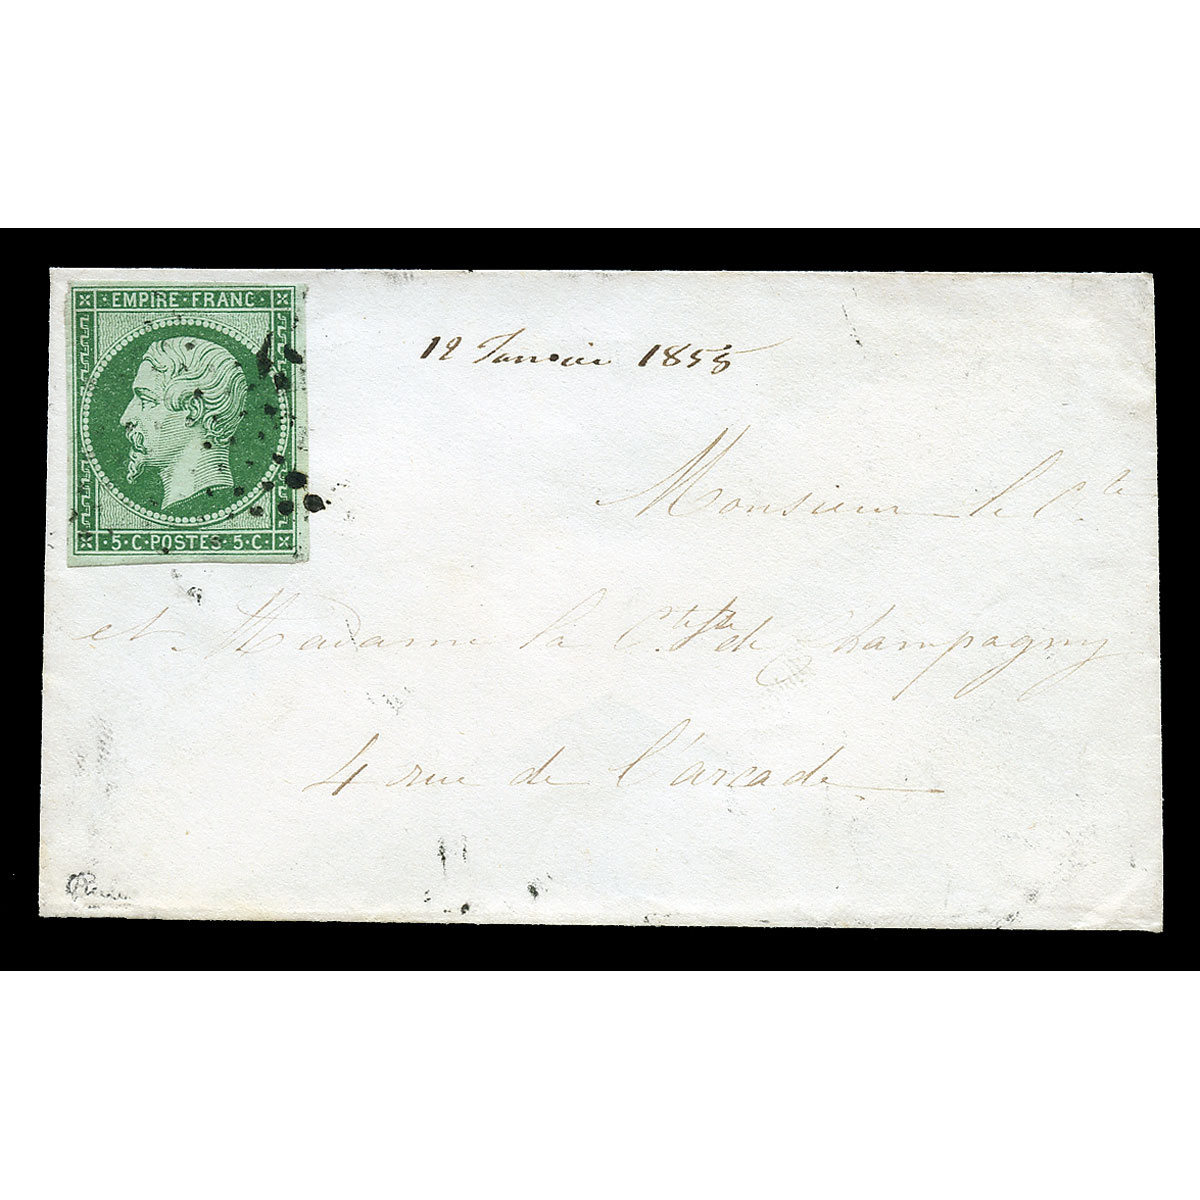 EMPIRE · FRANC ·
· 5 · C · POSTES · 5 · C ·
12 Janvier 1855
Monsieur le Cte
et Madame la Ctesse de Champagny
4 rue de l'arcade